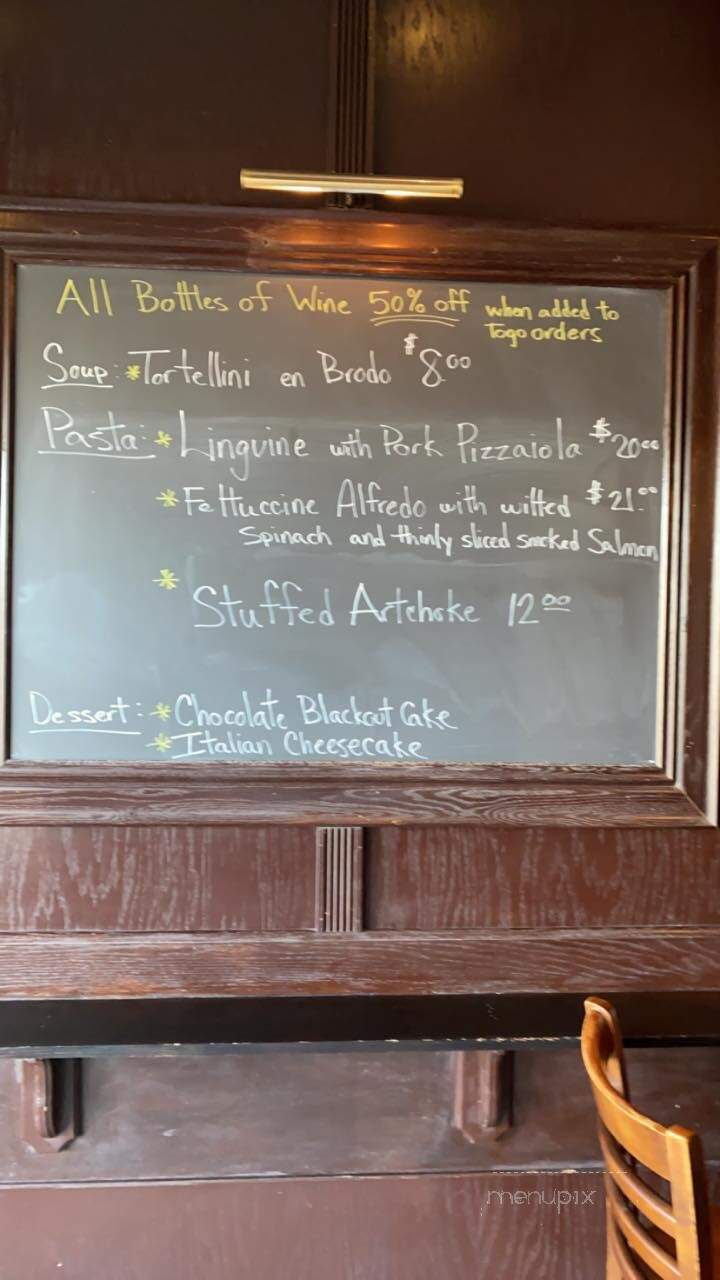 All Bottles of Wine 50% off when added to
Togo orders
Soup: *Tortellini en Brodo $8.00
Pasta: * Linguine with Pork Pizzaiola $20.00
* Fettuccine Alfredo with wilted $21.00
Spinach and thinly sliced smoked Salmon
* Stuffed Artchoke 12.00
Dessert: * Chocolate Blackout Cake
* Italian Cheesecake
menupix